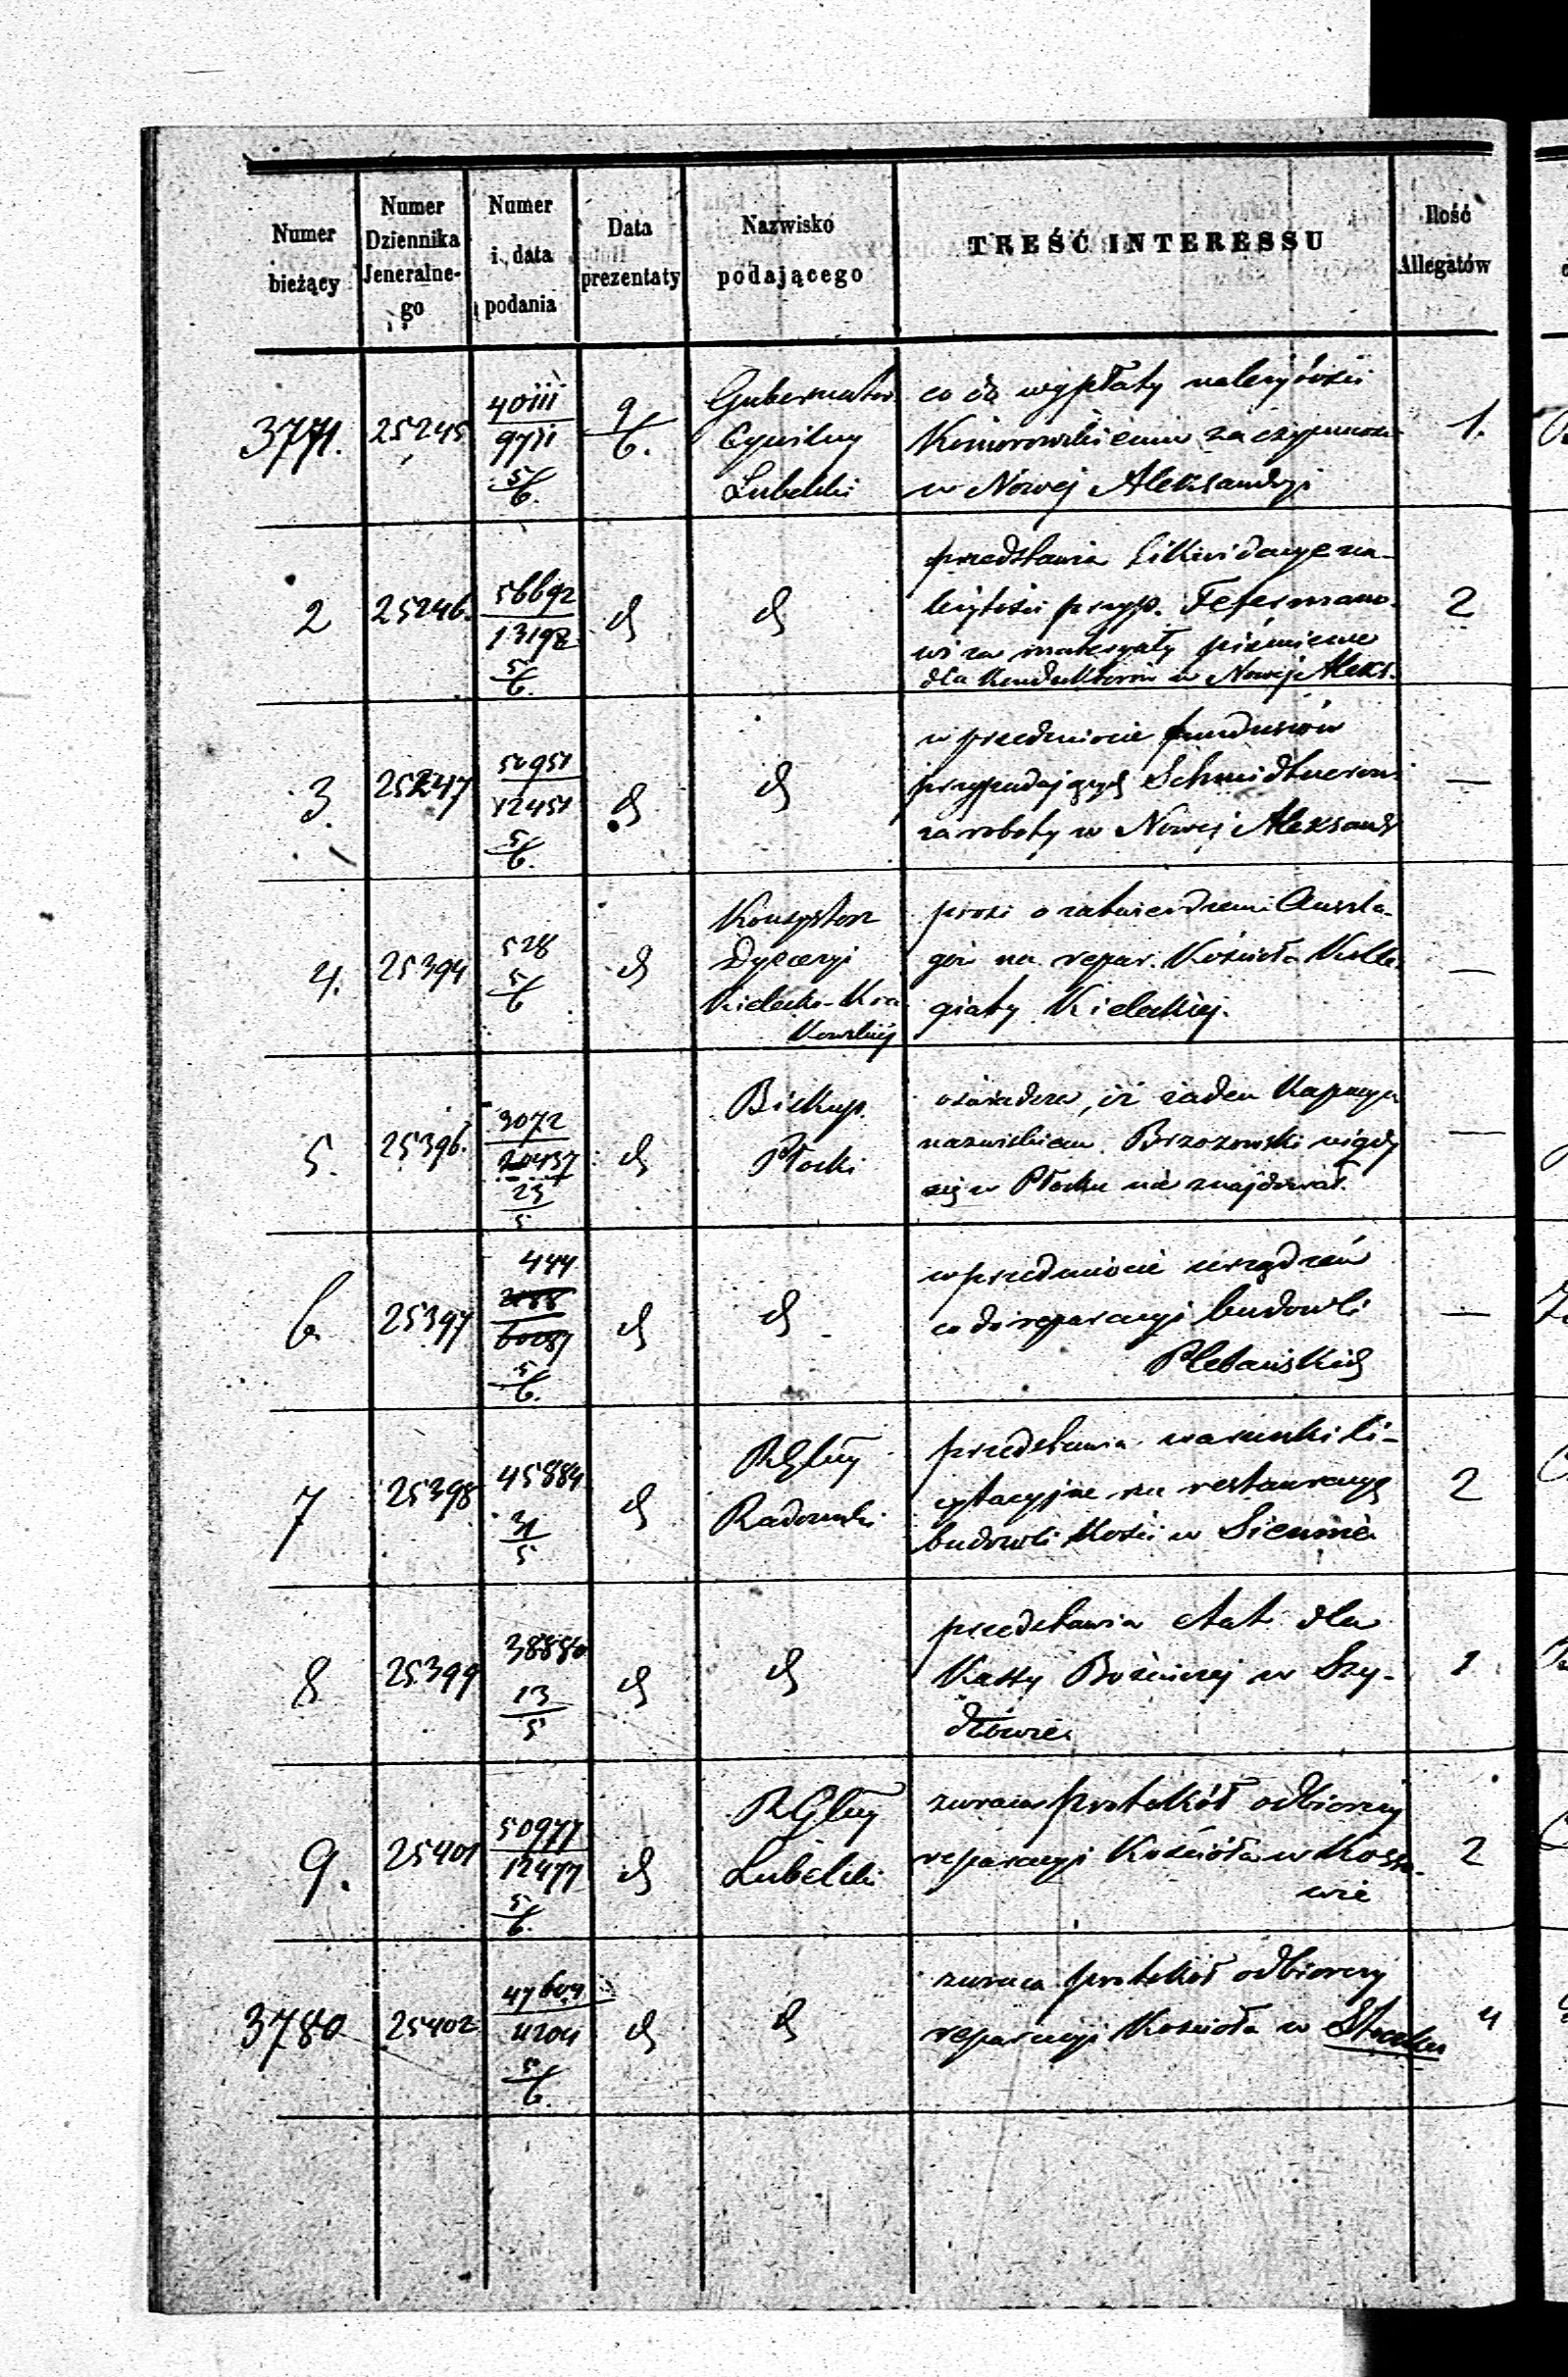 Numer bieżący
Numer Dziennika Jeneralne- go
Numer i data podania
Data prezentaty
Nazwisko podającego
TREŚĆ INTERESSU
Ilość Allegatów
3771.
25245
40111
9711
5/6.
9/6.
Gubernator
Cywilny
Lubelski
co do wypłaty należytości
Komorowskiemu za czynności
w Nowej Aleksandryi
1.
2
25246.
56692
13192
5/6.
d
d
przedstawia Likwidacye na-
leżytości przyp. Fefermano-
wi za materyały piśmienne
dla Konduktorów w Nowej Aleks.
2
3.
25247
50951
12451
5/6.
d
d
w przedmiocie funduszów
przypadających Schmidtnerowi
za roboty w Nowej Aleksandr
—
4.
25394
528
5/6
d
Konsystorz
Dyecezyi
Kielecko-Kra
kowskiej
prosi o zatwierdzenie Anszla-
gów na repar. Kościoła Kolle-
giaty Kieleckiej.
—
5.
25396.
3072
20437
23/5
d
Biskup
Płocki
oświadcza, iż żaden Kapucyn
nazwiskiem Brzozowski nigdy
się w Płocku nie znajdował.
—
6.
25397
444
5/6.
d
d
w przedmiocie urządzeń
co do reparacyi budowli
Plebańskich
—
7
25398
45884
31/5
d
RGlny
Radomski
przedstawia warunki li-
cytacyjne na restauracyę
budowli Kości w Siennie
2
8
25399
38880
13/5
d
d
przedstawia etat dla
Kassy Bożniczej w Szy-
dłowie
1
9.
25401
50977
12477
5/6.
d
RGlny
Lubelski
zwraca protokół odbiorczy
reparacyi Kościoła w Kossa-
wie
2
3780
25402
47604
4204
5/6.
d
d
zwraca protokół odbiorczy
reparacyi Kościoła w Stoczku
4